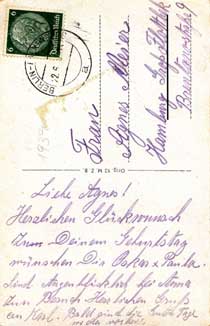 6 Deutsches Reich 6
BERLIN
Frau
Agnes Meier
Hamburg
9
Orig. 12 M.Z.B.
Liebe Agnes!
Herzlichen Glückwunsch
Zum Deinem Geburtstag
wünschen Dir Oskar + Paula.
Sind Augenblicklich bei Anna
Zum Besuch Herzlichen Gruß
an Karl. Bald sind die Tage